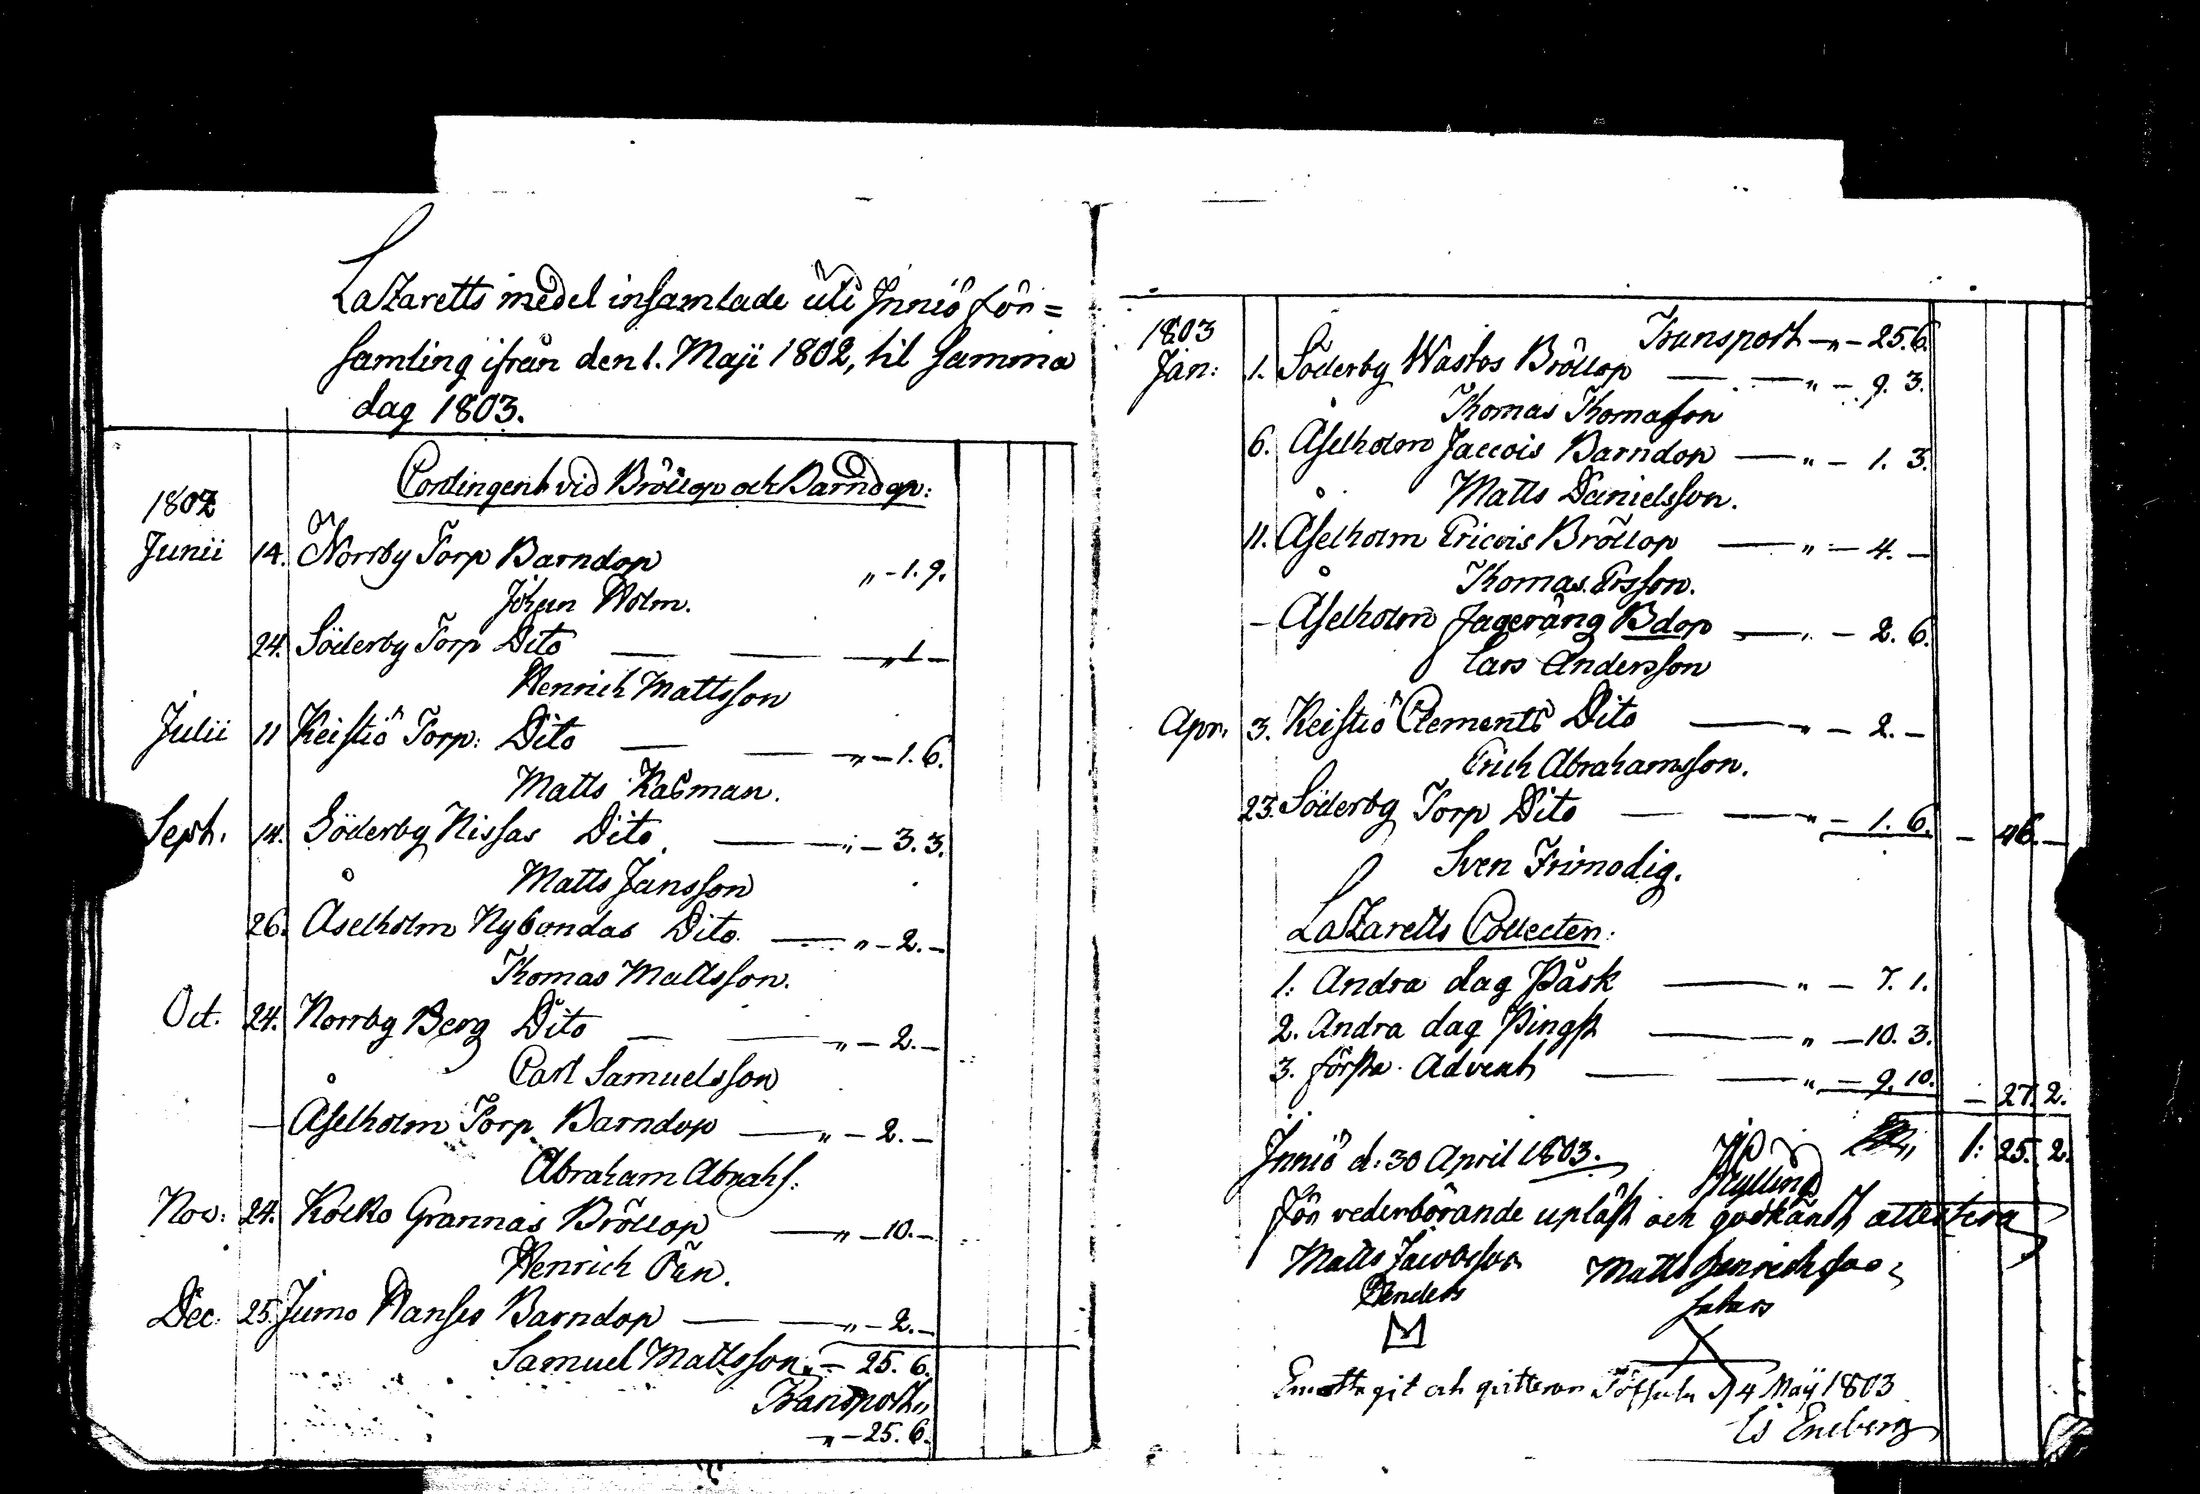 Latzaretts medel insamlade uti Iniö för=
samling ifrån den 1. Maji 1802, til samma
dag 1803.
Contingent vid Bröllop och Barndop:
1802
Junii 14. Norrby Torp Barndop " - 1. 9.
Johan Holm.
24. Söderby Torp Dito — — — " 1 -
Henrich Mattsson
Julii 11 Keistiö Torp: Dito — — " - 1. 6.
Matts Kalman.
Sept. 14. Söderby Nissas Dito — — " - 3. 3.
Matts Jansson
26. Åselholm Nybondas Dito — " - 2. -
Thomas Mattsson.
Oct. 24. Norrby Berg Dito — — " - 2. -
Carl Samuelsson
— Åselholm Torp Barndop — " - 2. -
Abraham Abrahs:
Nov: 24. Kolko Grannas Bröllop — " - 10. -
Henrich Öän.
Dec. 25. Jumo Hanses Barndop — — " - 2. -
Samuel Mattsson. " - 25. 6.
Transport "
" - 25. 6.
1803 Transport - " - 25. 6.
Jan: 1. Söderby Wästos Bröllop — — " - 9. 3.
Thomas Thomasson
6. Åselholm Jaccois Barndop — " - 1. 3.
Matts Danielsson.
11. Åselholm Ericois Bröllop — " - 4. -
Thomas Ersson.
- Åselholm Jageräng Bdop — " - 2. 6.
Lars Andersson
Apr. 3. Keistiö Clements Dito — " - 2. -
Erich Abrahamsson.
23. Söderby Torp Dito — — " - 1. 6. - 46. -
Sven Frimodig.
Latzaretts Collecten:
1: Andra dag Påsk — " - 7. 1.
2. Andra dag Pingst — " - 10. 3.
3. första Advent — — " - 9. 10. - 27. 2.
Iniö d: 30 April 1803. 1: 25. 2.
För vederbörande upläst och godkänt attestera
Matts Jacobsson Matts Henrichsson
Emottagit och qvitteras Töfsala d 4 Maij 1803
Eneberg